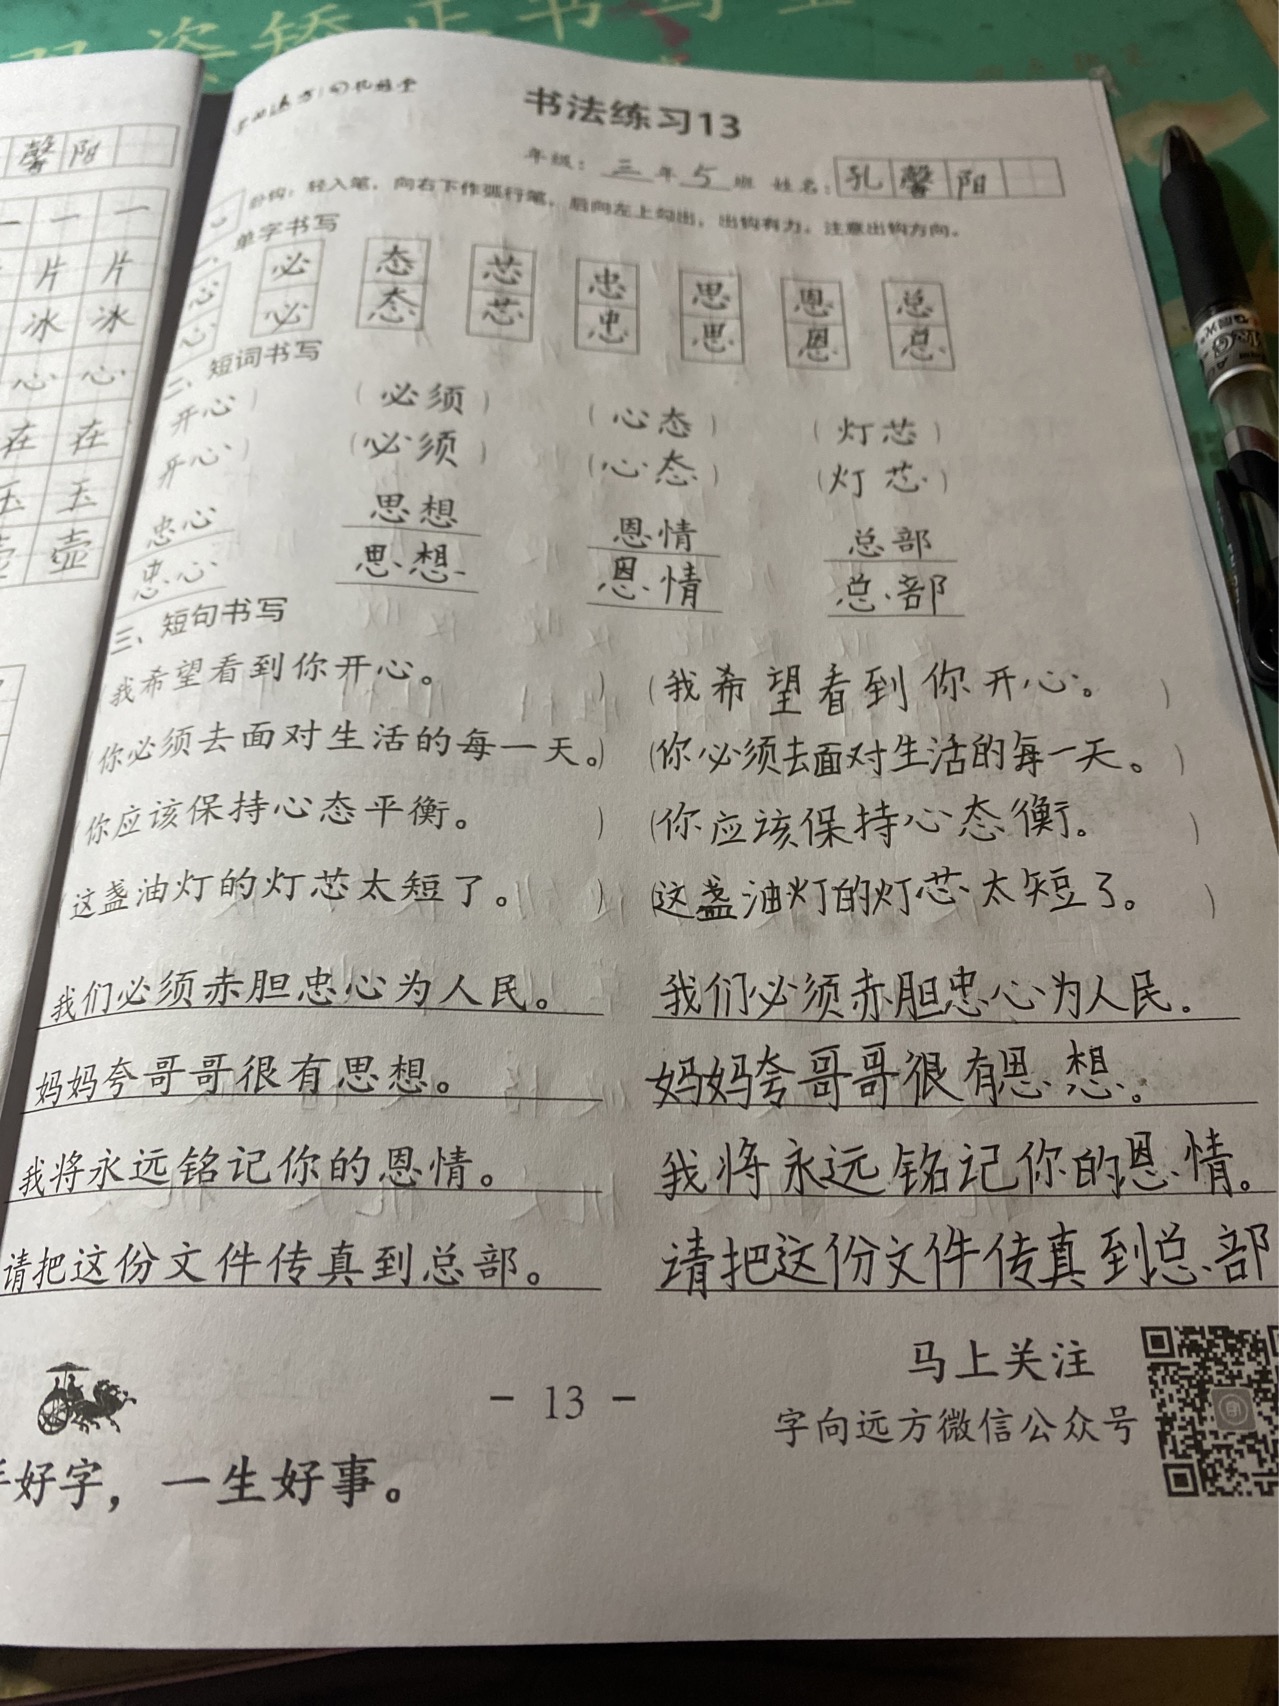 书法练习13
年级：三年5班 姓名：孔馨阳
馨阳
卧钩：轻入笔，向右下作弧行笔，后向左上勾出，出钩有力。注意出钩方向。
一、单字书写
心 必 态 芯 忠 思 恩 总
心 必 态 芯 忠 思 恩 总
二、短词书写
（开心）（必须）（心态）（灯芯）
（开心）（必须）（心态）（灯芯）
忠心 思想 恩情 总部
忠心 思想 恩情 总部
三、短句书写
我希望看到你开心。）（我希望看到你开心。）
（你必须去面对生活的每一天。）（你必须去面对生活的每一天。）
（你应该保持心态平衡。）（你应该保持心态衡。）
（这盏油灯的灯芯太短了。）（这盏油灯的灯芯太短了。）
我们必须赤胆忠心为人民。 我们必须赤胆忠心为人民。
妈妈夸哥哥很有思想。 妈妈夸哥哥很有思想。
我将永远铭记你的恩情。 我将永远铭记你的恩情。
请把这份文件传真到总部。 请把这份文件传真到总部
一 一
片 片
冰 冰
心 心
在 在
玉 玉
壶 壶
马上关注
- 13 -
字向远方微信公众号
好字，一生好事。